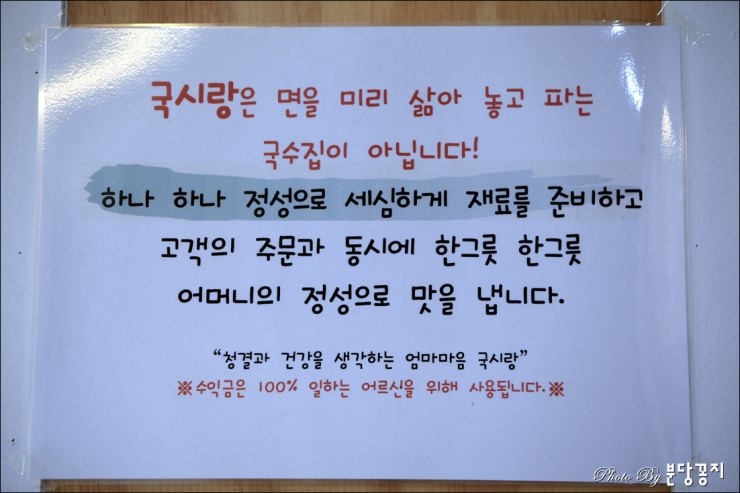 국시랑은 면을 미리 삶아 놓고 파는
국수집이 아닙니다!
하나 하나 정성으로 세심하게 재료를 준비하고
고객의 주문과 동시에 한그릇 한그릇
어머니의 정성으로 맛을 냅니다.
“청결과 건강을 생각하는 엄마마음 국시랑”
※수익금은 100% 일하는 어르신을 위해 사용됩니다.※
Photo By 분당꽁지